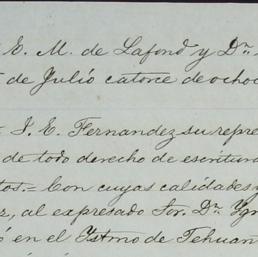 E. M. de Lafond y Dn.
de Julio catorce de ocho
J. E. Fernandez su repre
de todo derecho de escritura
tos.= Con cuyas calidades y
z, al expresado Sor. Dn. Ygn
ó en el Istmo de Tehuan